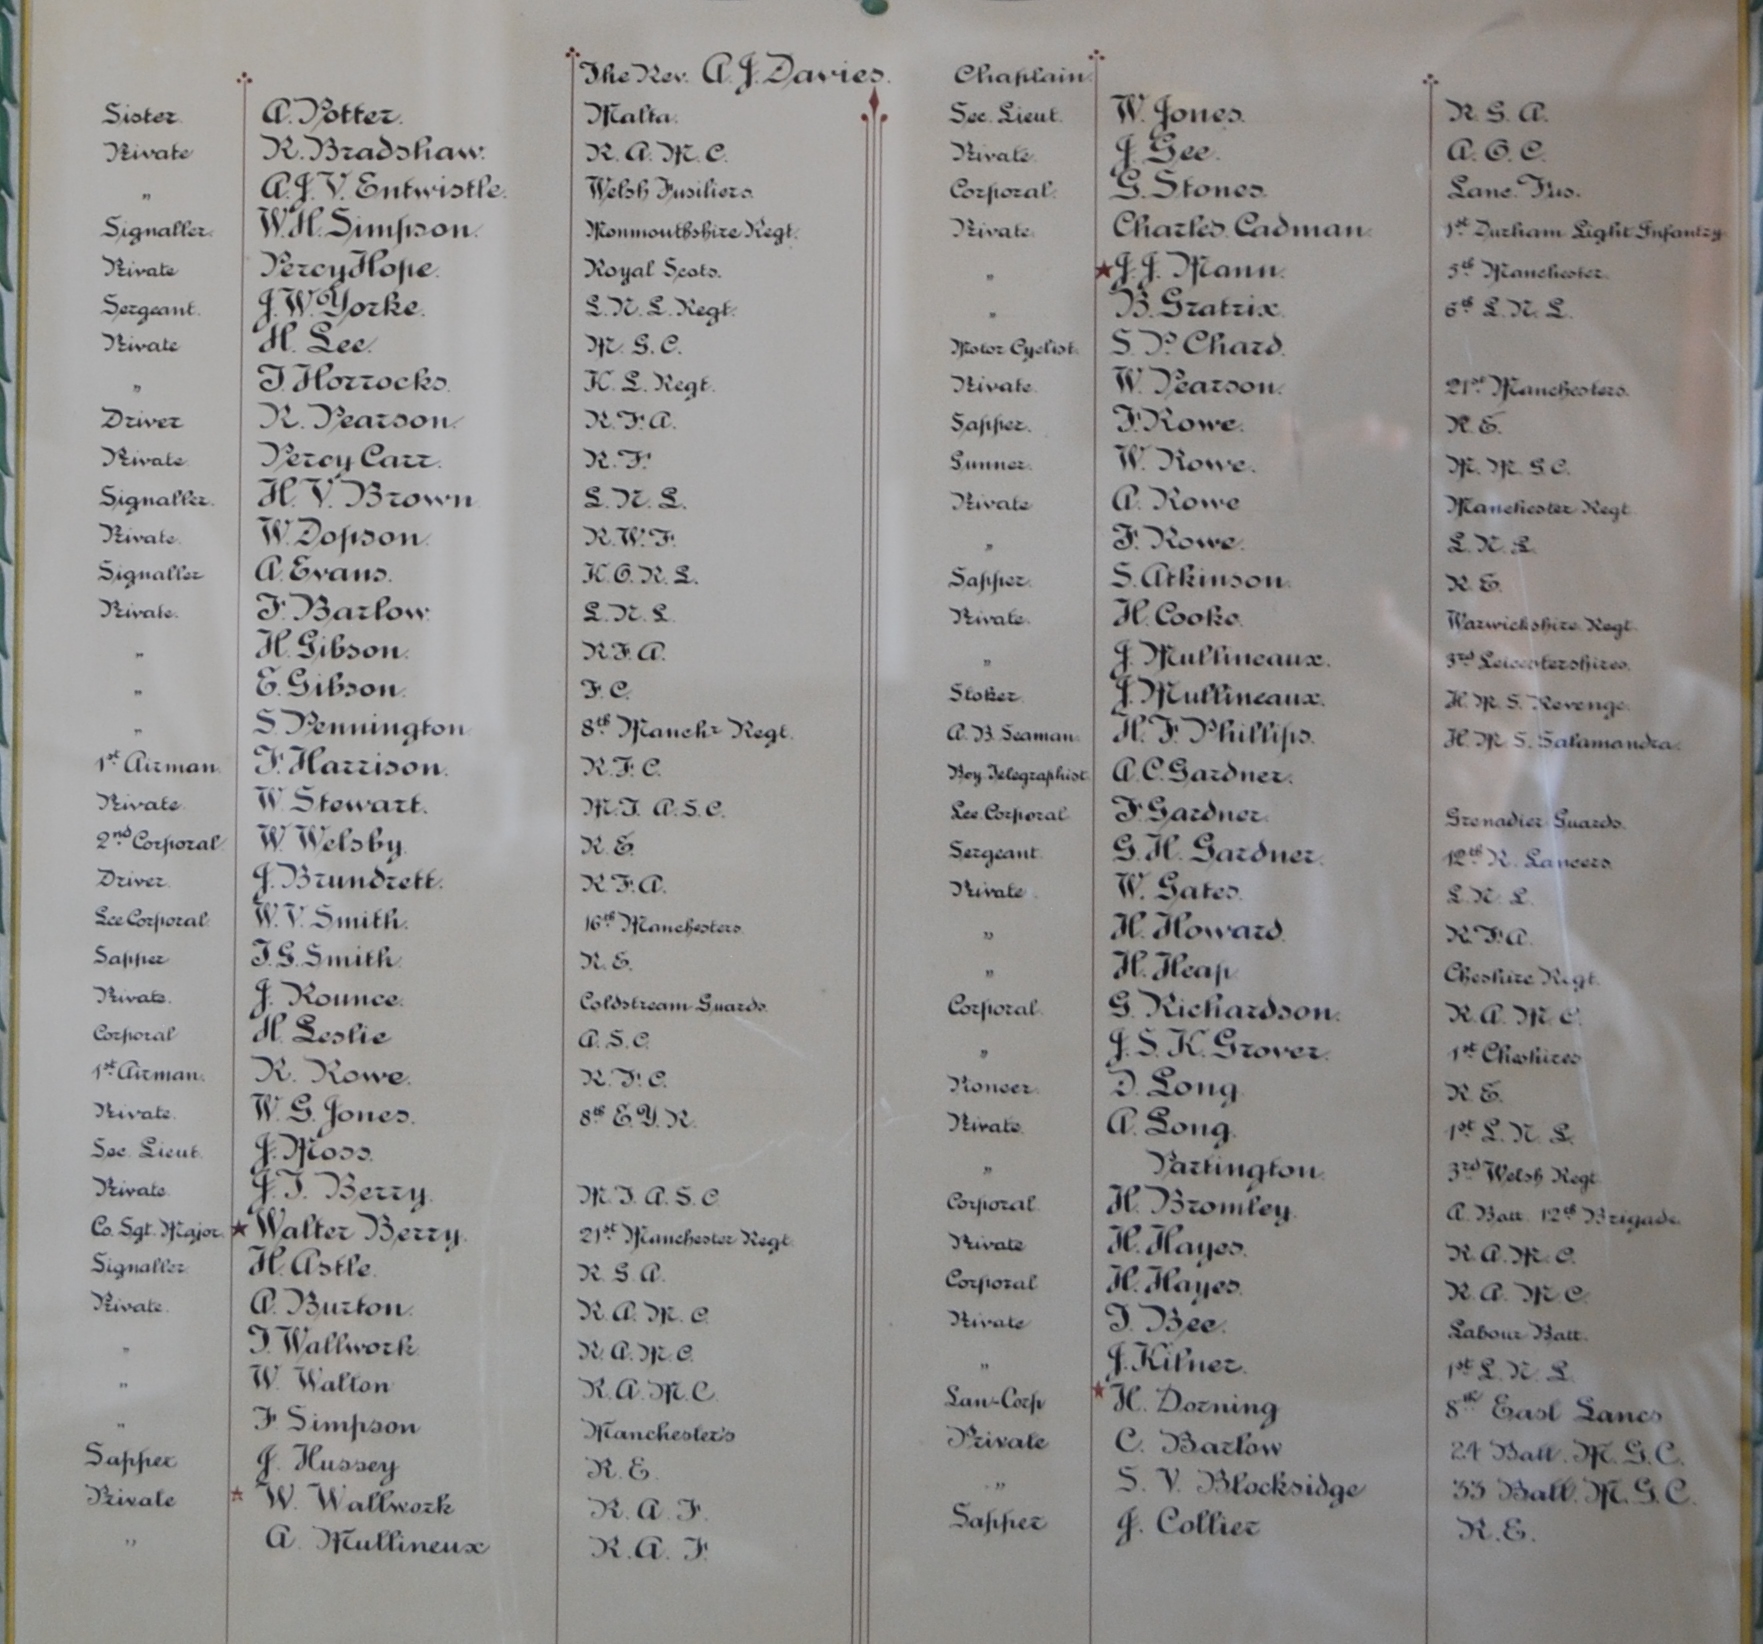 The Rev. A. J. Davies. Chaplain.
Sister. A. Potter. Malta.
Private R. Bradshaw. R. A. M. C.
„ A. J. V. Entwistle. Welsh Fusiliers.
Signaller. W. H. Simpson. Monmouthshire Regt.
Private Percy Hope. Royal Scots.
Sergeant. J. W. Yorke. L. N. L. Regt.
Private H. Lee. M. G. C.
„ T. Horrocks. K. L. Regt.
Driver R. Pearson. R. F. A.
Private. Percy Carr. R. F.
Signaller. H. V. Brown L. N. L.
Private. W. Dopson. R. W. F.
Signaller A. Evans. K. O. R. L.
Private. F. Barlow. L. N. L.
„ H. Gibson. R. F. A.
„ E. Gibson. F. C.
„ S. Pennington 8th Manchr Regt.
1st Airman. F. Harrison. R. F. C.
Private. W. Stewart. M. T. A. S. C.
2nd Corporal W. Welsby. R. E.
Driver. J. Brundrett. R. F. A.
Lce Corporal W. V. Smith. 16th Manchesters.
Sapper T. G. Smith. R. E.
Private. J. Rounce. Coldstream Guards.
Corporal H. Leslie A. S. C.
1st Airman. R. Rowe. R. F. C.
Private. W. G. Jones. 8th E. Y. R.
Sec. Lieut. J. Moss.
Private. J. T. Berry. M. T. A. S. C.
Co. Sgt. Major. ★ Walter Berry. 21st Manchester Regt.
Signaller H. Astle. R. G. A.
Private. A. Burton. R. A. M. C.
„ T. Wallwork R. A. M. C.
„ W. Walton R. A. M. C.
„ F. Simpson Manchester's
Sapper J. Hussey R. E.
Private ★ W. Wallwork R. A. F.
„ A. Mullineux R. A. F.
Sec. Lieut. W. Jones. R. G. A.
Private. J. Gee. A. O. C.
Corporal. G. Stones. Lanc. Fus.
Private. Charles Cadman. 1st Durham Light Infantry
„ ★ J. J. Mann. 5th Manchester.
„ B. Gratrix. 6th L. N. L.
Motor Cyclist. S. P. Chard.
Private. W. Pearson. 21st Manchesters.
Sapper. F. Rowe. R. E.
Gunner. W. Rowe. M. M. G. C.
Private A. Rowe Manchester Regt
„ F. Rowe. L. N. L.
Sapper. S. Atkinson. R. E.
Private. H. Cooke. Warwickshire Regt.
„ J. Mullineaux. 3rd Leicestershires.
Stoker J. Mullineaux. H. M. S. Revenge.
A. B. Seaman. H. F. Phillips. H. M. S. Salamandra.
Boy Telegraphist A. C. Gardner.
Lce. Corporal F. Gardner. Grenadier Guards.
Sergeant. G. H. Gardner. 12th R. Lancers
Private. W. Gates. L. N. L.
„ H. Howard. R. F. A.
„ H. Heap. Cheshire Regt.
Corporal. G. Richardson. R. A. M. C.
„ J. S. K. Grover. 1st Cheshires
Pioneer. D. Long R. E.
Private. A. Long. 1st L. N. L.
„ Partington. 3rd Welsh Regt
Corporal H. Bromley. A. Batt. 12th Brigade.
Private H. Hayes. R. A. M. C.
Corporal H. Hayes. R. A. M. C.
Private T. Bee. Labour Batt.
„ J. Kilner. 1st L. N. L.
Lan-Corp ★ H. Dorning 8th East Lancs
Private C. Barlow 24 Batt. M. G. C.
„ S. V. Blocksidge 33 Batt. M. G. C.
Sapper J. Collier R. E.